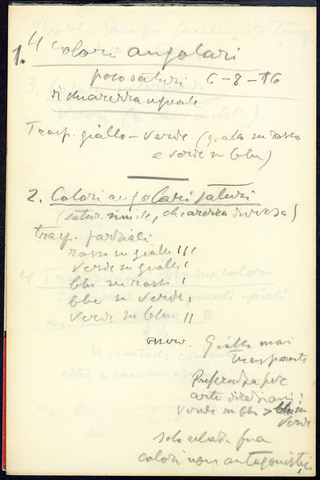 1. 4 colori angolari
poco saturi 6-8-16
di chiarezza uguale
Trasp. giallo - verde (giallo su rosso
e verde su blu)
2. Colori angolari saturi
(satur. simile, chiarezza diversa)
trasp. parziali
rosso su giallo !!!
verde su giallo !
blu su rosso !
blu su verde !
verde su blu !!
Giallo mai
trasparente
Preferenza per
certe direzioni :
verde su blu > blu su
verde
solo relaz. fra
colori non antagonistici